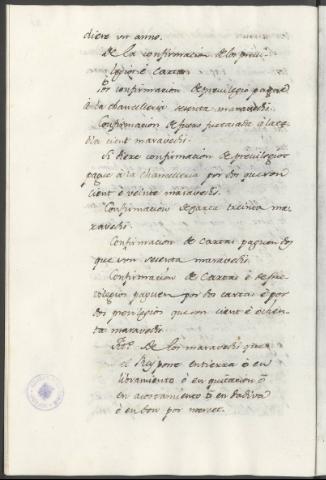 diere un anno.
De la confirmacion de los previ-
legios é Cartas
Por confirmacion de previlegio pague
á la chancelleria sesenta maravedis.
Confirmacion de
cient maravedis.
Si diere confirmacion de previlegios
pague á la chancelleria por dos que son
cient é veinte maravedis.
Confirmacion de carta treinta ma-
ravedis.
Confirmacion de Cartas paguen dos
que son sesenta maravedis.
Confirmacion de Cartas é de pre-
vilegios paguen por dos cartas é por
dos previlegios que son ciento é ochen-
ta maravedis.
De los maravedis que
el Rey pone en tierra ó en
libramiento ó en quitacion ó
en acostamiento ó en dadiva
ó en don por merced.